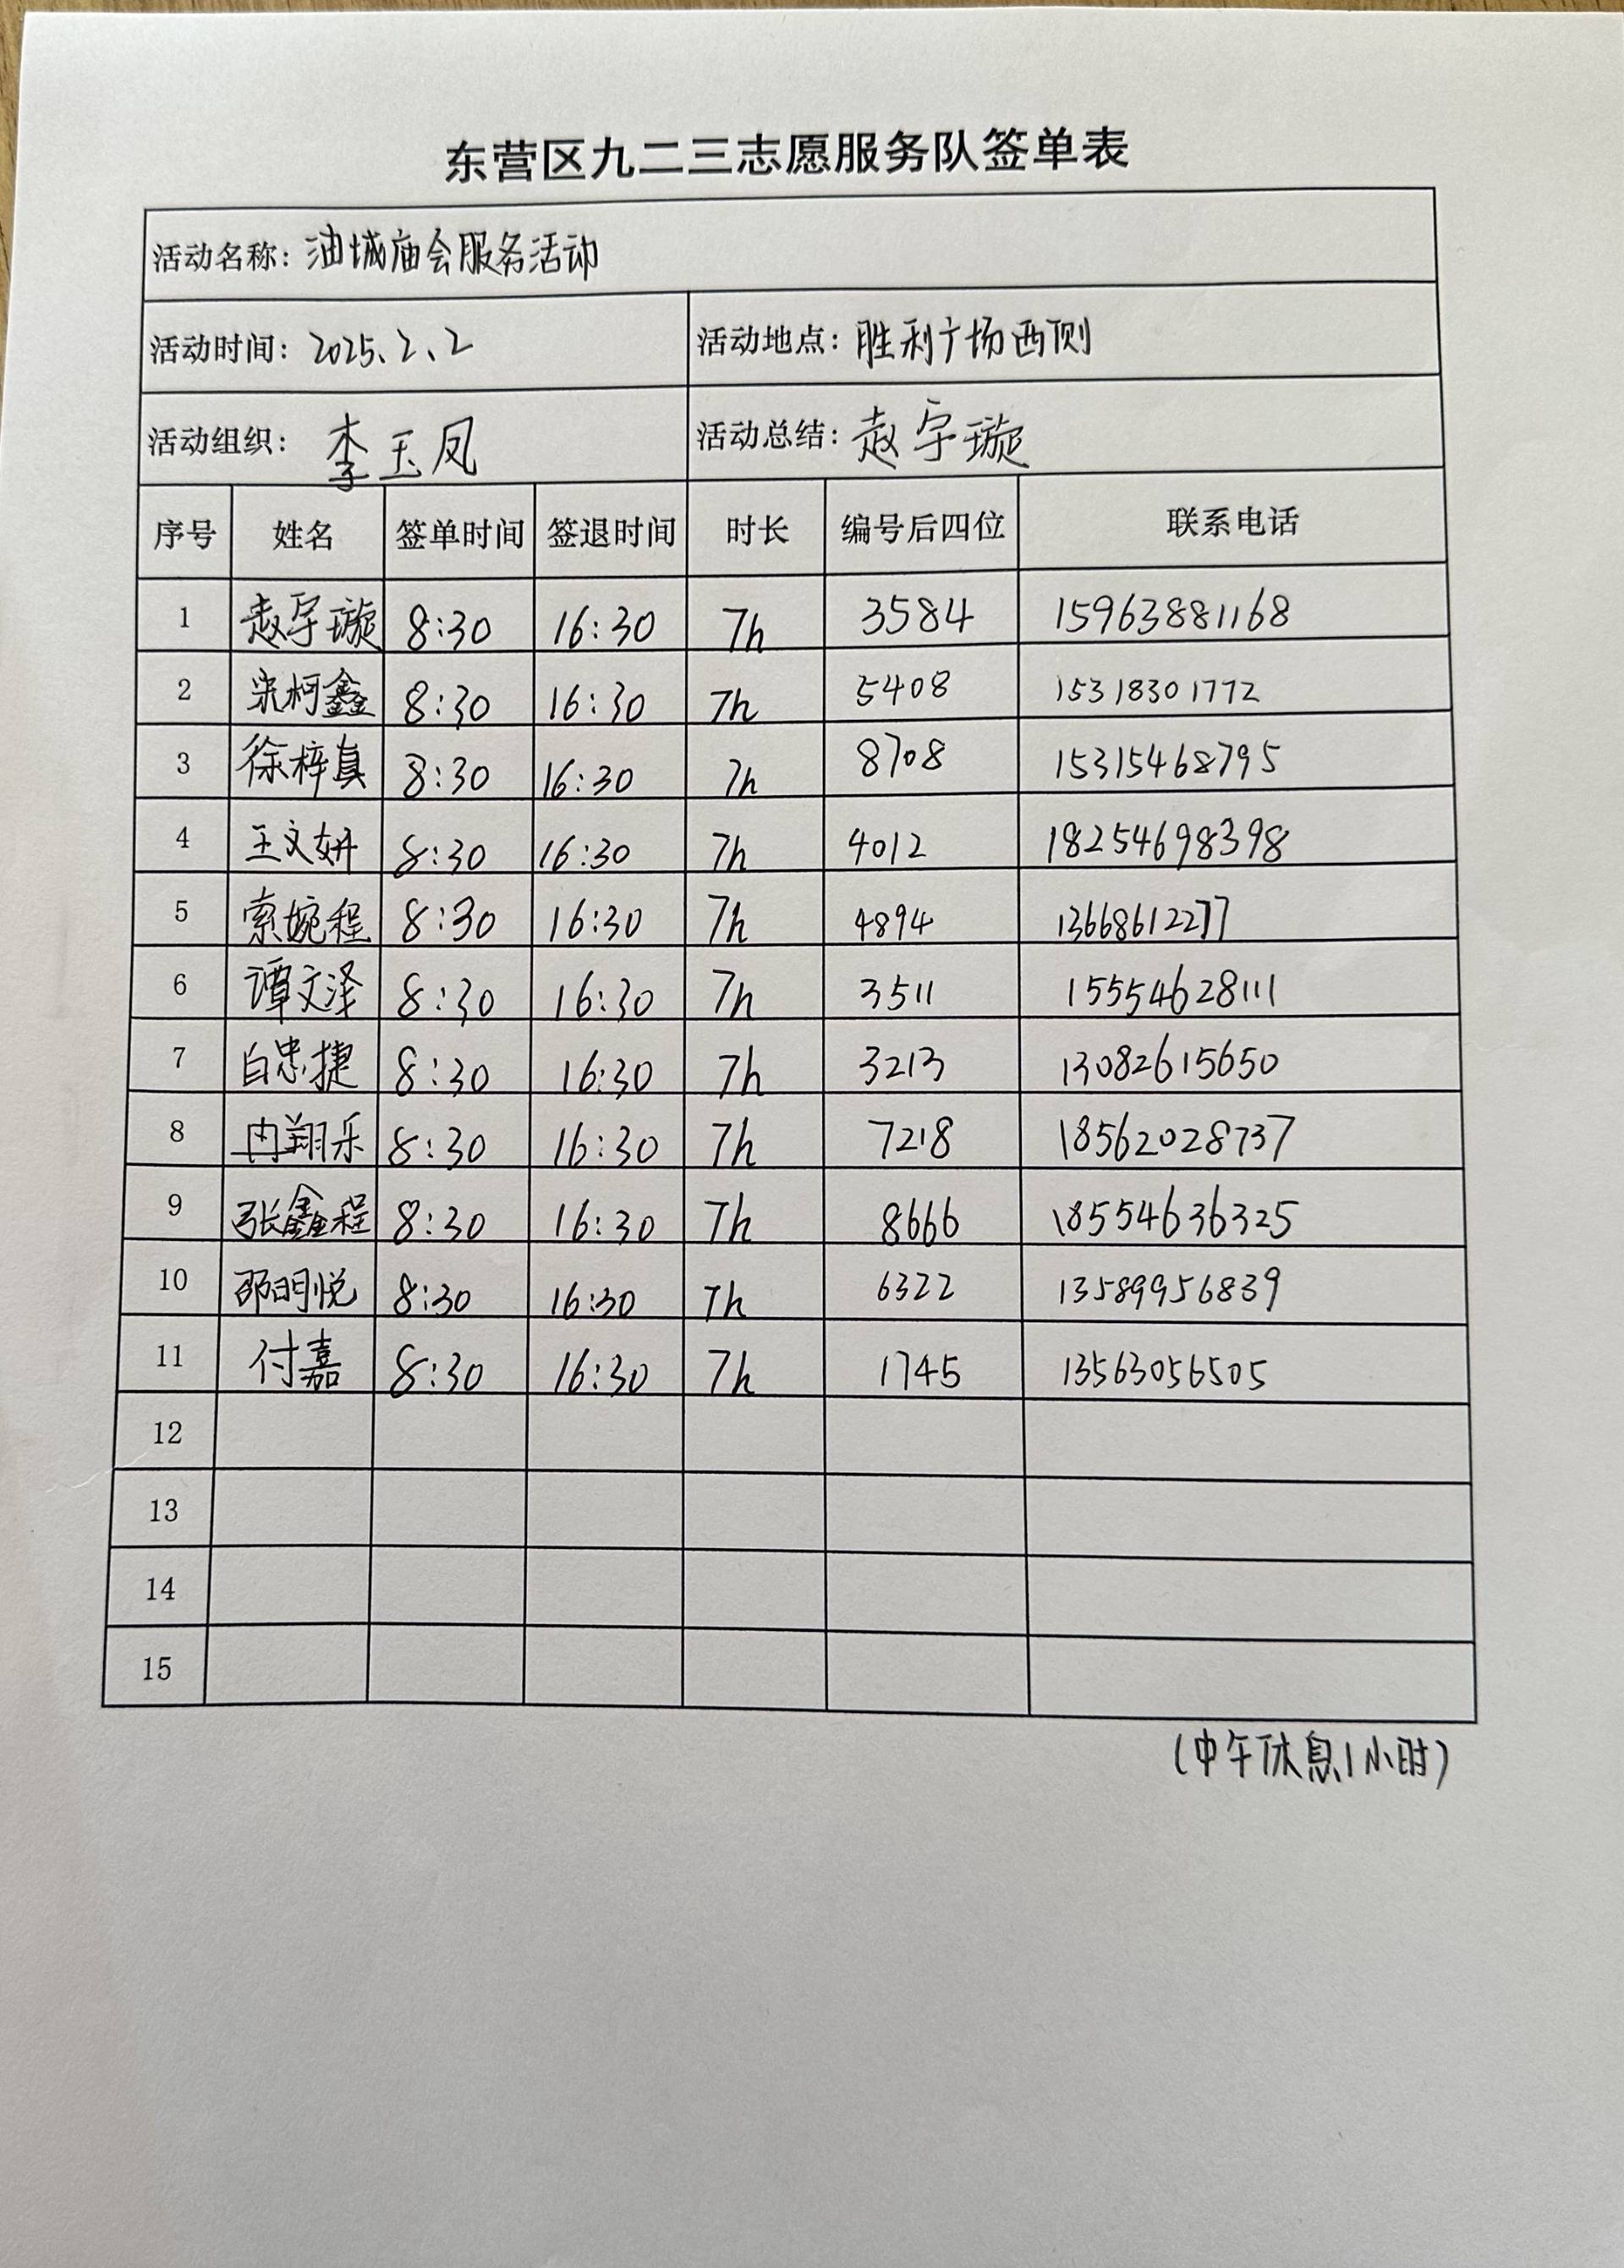 东营区九二三志愿服务队签单表
活动名称：油城庙会服务活动
活动时间：2025.2.2 活动地点：胜利广场西侧
活动组织：李玉凤 活动总结：赵宇璇
序号 姓名 签单时间 签退时间 时长 编号后四位 联系电话
1 赵宇璇 8:30 16:30 7h 3584 15963881168
2 梁柯鑫 8:30 16:30 7h 5408 15318301772
3 徐梓真 8:30 16:30 7h 8708 15315468795
4 王文妍 8:30 16:30 7h 4012 18254698398
5 索婉程 8:30 16:30 7h 4894 13668612277
6 谭文泽 8:30 16:30 7h 3511 15554628111
7 白忠捷 8:30 16:30 7h 3213 13082615650
8 冉翔乐 8:30 16:30 7h 7218 18562028737
9 张鑫程 8:30 16:30 7h 8666 18554636325
10 邵明悦 8:30 16:30 7h 6322 13589956839
11 付嘉 8:30 16:30 7h 1745 13563056505
12
13
14
15
（中午休息1小时）